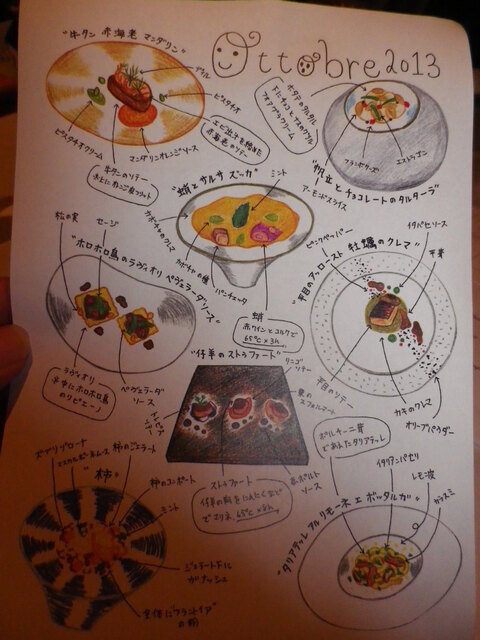 Ottobre 2013
"牛タン 赤海老 マンダリン"
ディル
ピスタチオ
エビ出汁を詰めた
赤海老のソテー
マンダリンオレンジソース
ピスタチオクリーム
牛タンのソテー
ホタテのタルタル
フランボワーズ
エストラゴン
アーモンドスライス
"帆立とチョコレートのタルターラ"
"蛸とサルサ ズッカ"
ミント
カボチャのクレマ
カボチャの種
パンチェッタ
蛸
赤ワインとコルクで
65℃×3h
松の実
セージ
"ホロホロ鳥のラヴィオリ ペヴェラーダソース"
ラヴィオリ
中央にホロホロ鳥
のリピエーノ
ペヴェラーダ
ソース
"平目のアッロースト 牡蠣のクレマ"
ピンクペッパー
イカスミソース
芋茎
平目のソテー
カキのクレマ
オリーブパウダー
"仔羊のストゥファート"
リンゴ
ソテー
栗の
スフォルマート
トレビス
ソテー
赤ポルト
ソース
ストゥファート
65℃×8h
"柿"
柿のジェラート
柿のコンポート
ミント
ジェラート下に
ガナッシュ
全体に"フランボワーズ"
の粉
ポルチーニ茸
であえたタリアテッレ
イタリアンパセリ
レモン皮
カラスミ
"タリアテッレ アル リモーネ エ ボッタルガ"